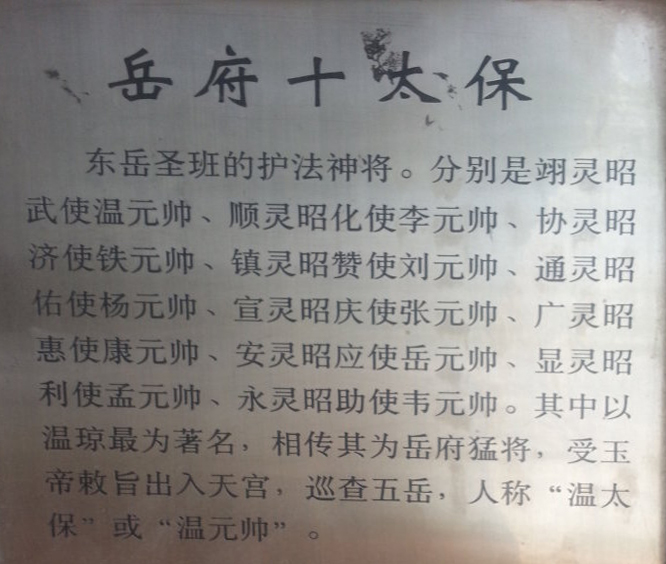 岳府十太保
东岳圣班的护法神将。分别是翊灵昭
武使温元帅、顺灵昭化使李元帅、协灵昭
济使铁元帅、镇灵昭赞使刘元帅、通灵昭
佑使杨元帅、宣灵昭庆使张元帅、广灵昭
惠使康元帅、安灵昭应使岳元帅、显灵昭
利使孟元帅、永灵昭助使韦元帅。其中以
温琼最为著名，相传其为岳府猛将，受玉
帝敕旨出入天宫，巡查五岳，人称“温太
保”或“温元帅”。